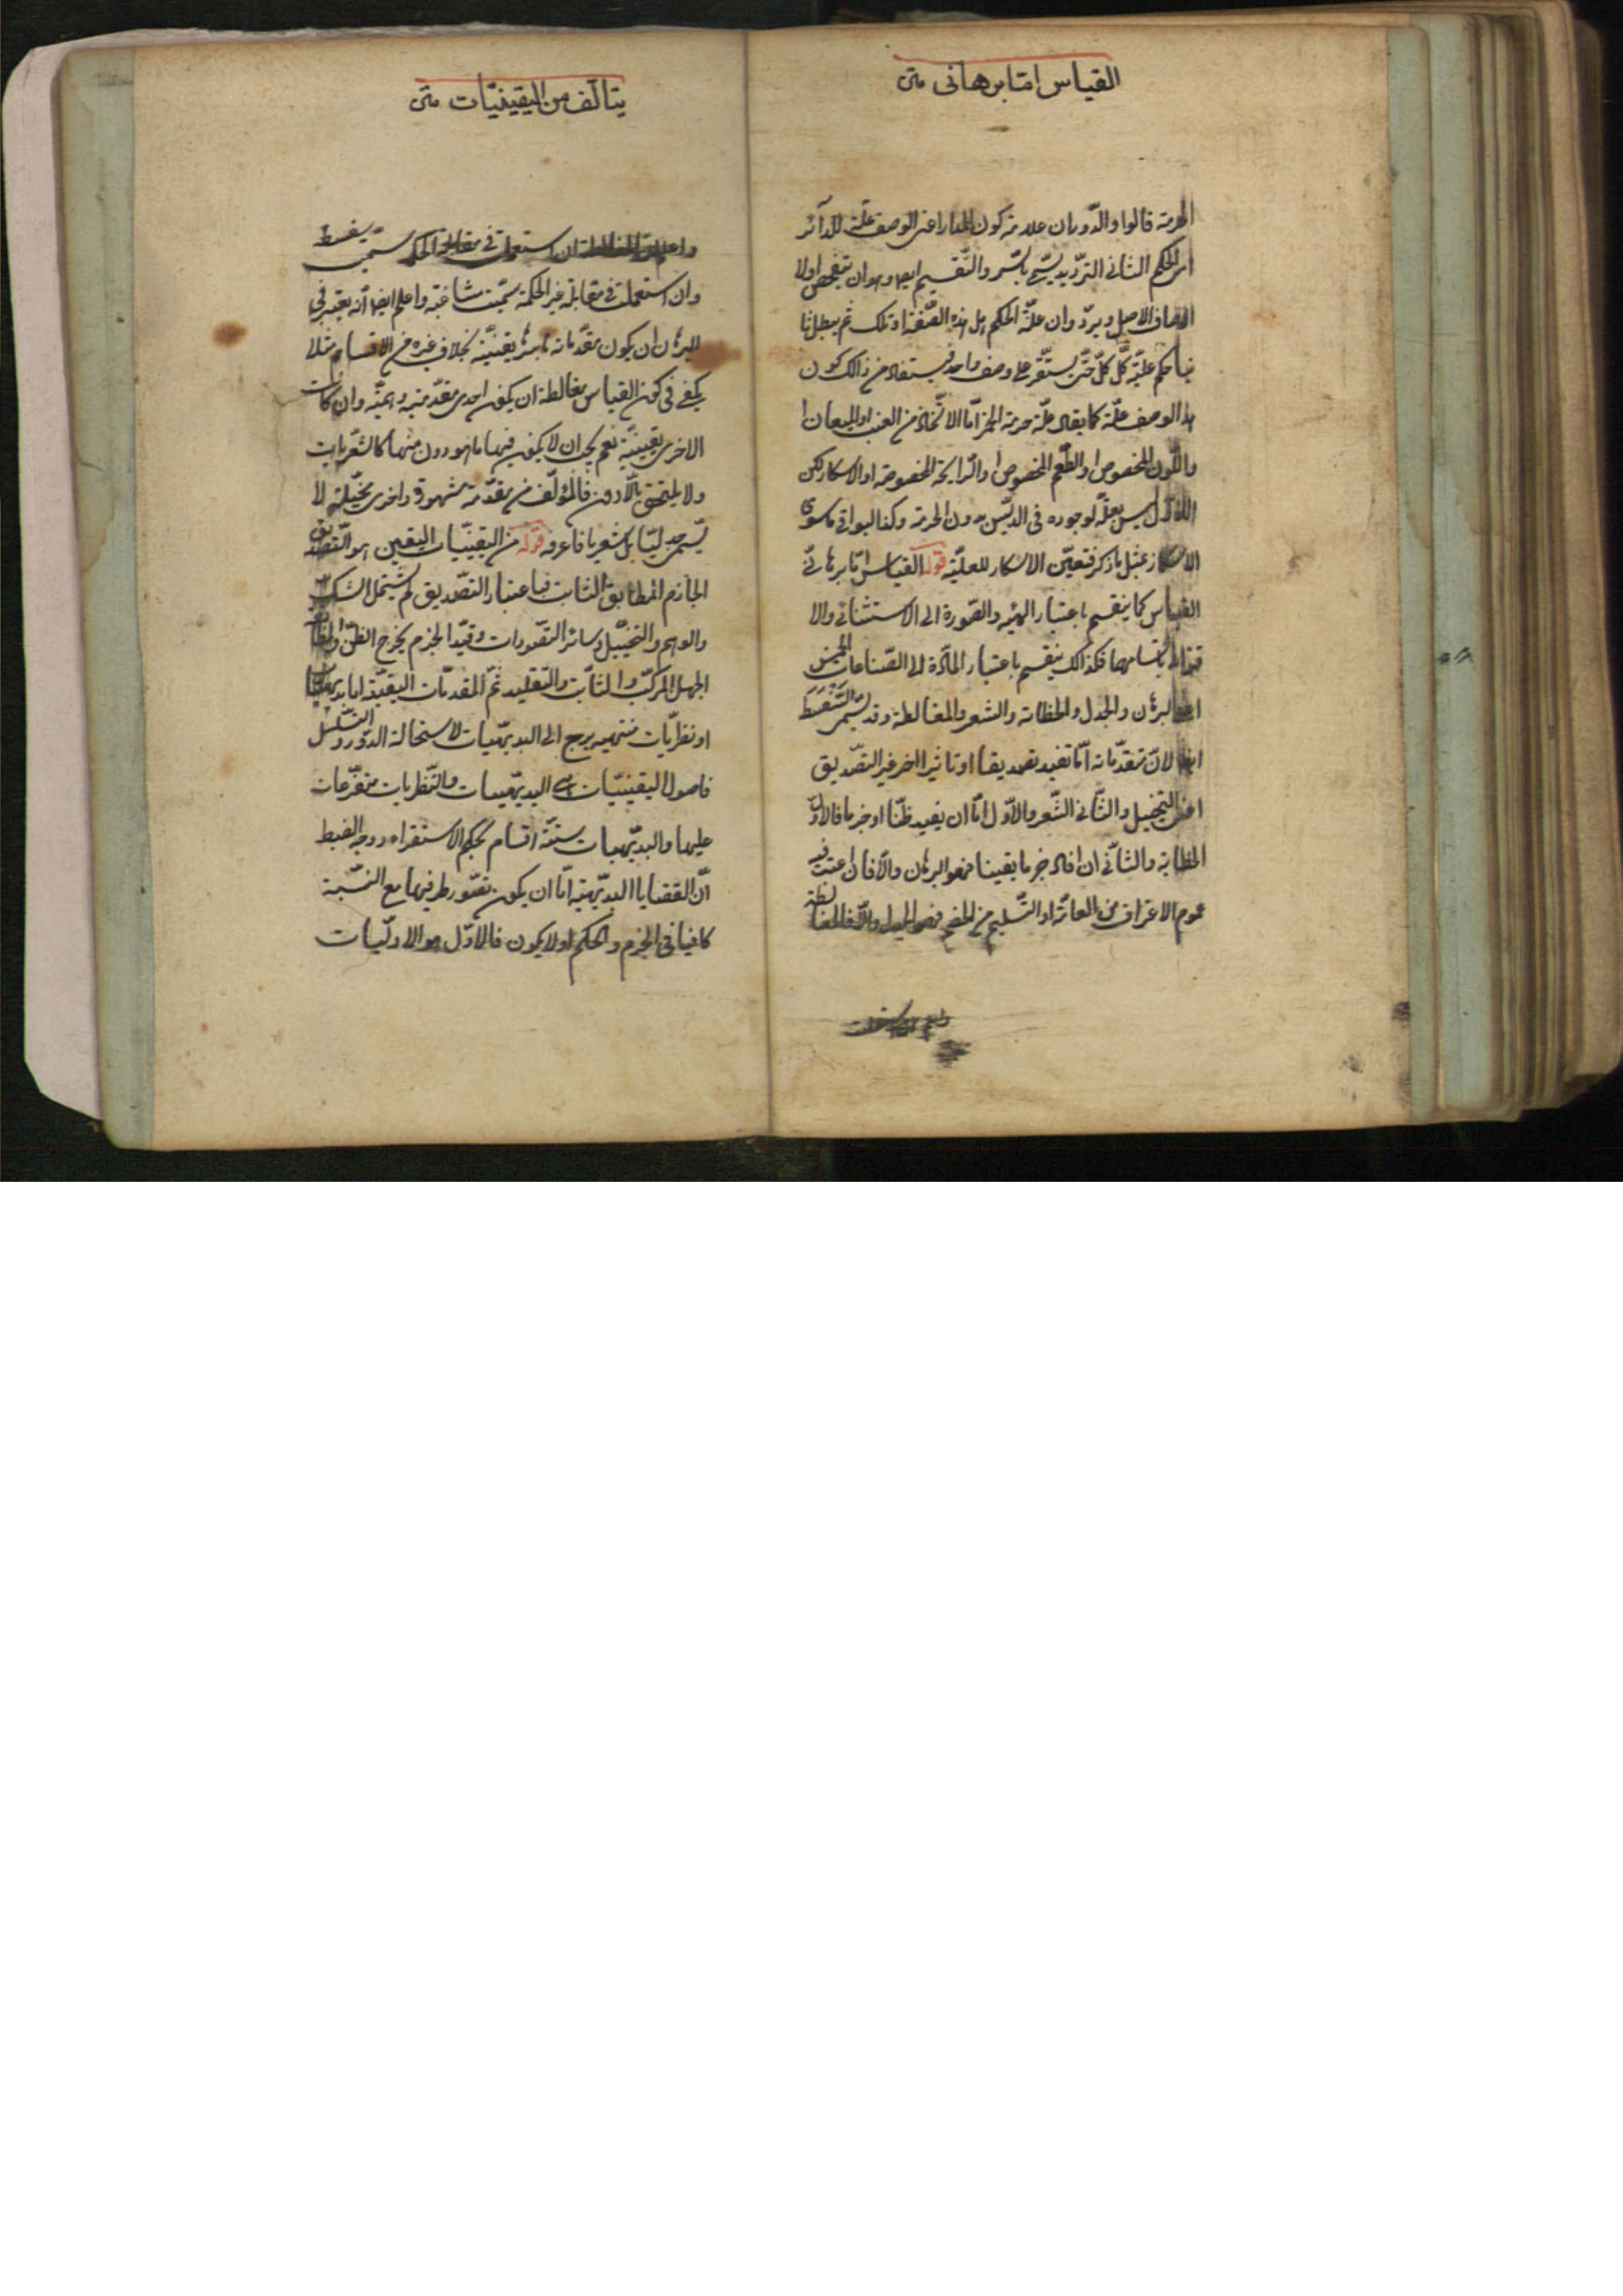 القياس امّا برهانى متن
الحرمة قالوا والدّوران علامة كون المدار اعنى الوصف علّة للدّآئر
اى الحكم الثانى الترّديد يسمّى بالسّبر والتّقسيم ايضا وهو ان يتفحص اولا
اوصاف الاصل ويردّد ان علّة الحكم هل هذه الصّفة او تلك ثم يبطل ثا
نيا حكم علّيّة كلّ كلّ حتّى يستقّر على وصف واحد فيستفاد من ذالك كون
هذا الوصف علّة كما يقال علّة حرمة الخمر امّا الاتّخاذ من العنب او الميعان ا
واللّون المخصوص او الطّعم المخصوص او الرّايحة المخصوصة او الاسكار لكن
الاوّل ليس بعلّة لوجوده فى الدبس بدون الحرمة وكذا البواقى ما سوى
الاسكار بمثل ما ذكر فتعيّن الاسكار للعليّة قوله القياس امّا برهانىّ
القياس كما ينقسم باعتبار الهيئة والصّورة الى الاستثنائى والا
قترانى باقسامهما فكذالك ينقسم باعتبار المآدّة الى الصّناعات الخمس
اعنى البرهان والجدل والخطابة والشعر والمغالطة وقد تسمّى السّفسطة
ايضا لانّ مقدّماته امّا تفيد تصديقا او تاثيرا اخر غير التصّديق
اعنى التخييل والثّانى الشّعر والاوّل امّا ان يفيد ظنّا او جزما فالاوّل
الخطابة والثّانى ان افاد جزما يقينا فهو البرهان والّا فان اعتبر فيه
عموم الاعتراف من العامّة او التّسليم من الخصم فهو الجدل والّا فالمغا
لطة
يتالّف من اليقينيّات متن
واعلم انّ المغالطة ان استعملت فى مقابلة الحكيم سميت سفسطة
وان استعملت فى مقابلة غير الحكيم سمّيت مشاغبة واعلم ايضا انّه يعتبر فى
البرهان ان يكون مقدّماته باسرها يقينيّة بخلاف غيره من الاقسام مثلا
يكفى فى كون القياس مغالطة ان يكون احدى مقدّمتيه وهميّة وان كانت
الاخرى يقينيّة نعم يجب ان لا يكون فيها ما هو دون منهما كالشّعريات
ولا يلتحق بالّادون فالمؤلّف من مقدّمة مشهورة واخرى مخيّلة لا
يسّمى جدليّا بل شعريا فاعرفه قوله من اليقينيّات اليقين هو التّصديق
الجآزم المطابق الثابت فباعتبار التصّديق لم يشتمل الشّك
والوهم والتخيّيل وسائر التصّورات وقيد الجزم يخرج الظنّ والمطابقة
الجهل المركّب والثابت والتقليد ثمّ المقدمّات اليقينيّة اما بديهيّات
او نظريّات منتهيه يرجع الى البديهيّات لاستحالة الدّور والتّسلسل
فاصول اليقينيّات هى البديهيّات والنّظريات متفرّعات
عليها والبديهيات ستة اقسام بحكم الاستقراء ووجه الضبط
انّ القضايا البديّهية امّا ان يكون تصّور طرفيها مع النّسبة
كافيا فى الجزم والحكم اولا يكون فالاوّل هو الاوليّات